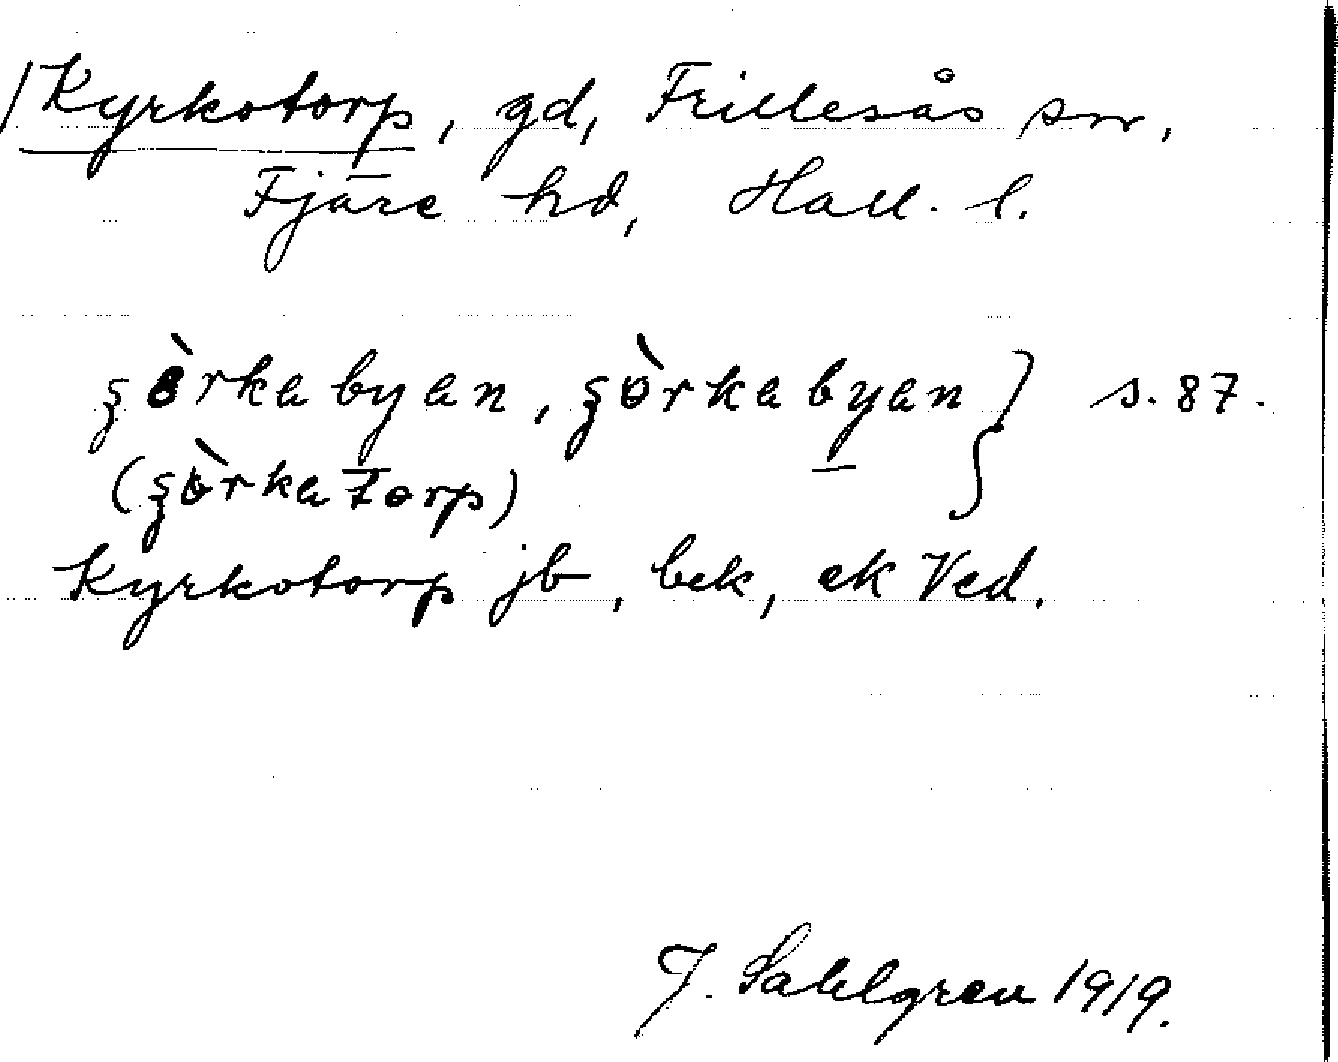 /Kyrkotorp, gd, Frillesås sn,
Fjäre hd, Hall. l.
ʂɵ̀rkabyan, ʂɵ̀rkabyan } s. 87.
(ʂɵ̀rkatorp)
Kyrkotorp jb, bek, ek Ved.
J. Sahlgren 1919.